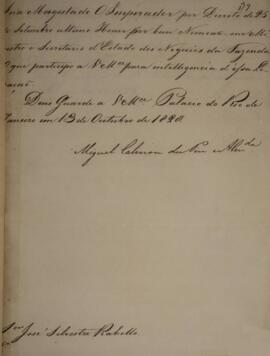 Sua Magestade O Imperador por Decreto de 25
de Setembro ultimo Houve por bem Nomear-me Mi
nistro e Secretario d'Estado dos Negocios da Fazenda
o que participo a V Mce para intelligencia d'essa Le
gação
Deos Guarde a V Mce Palacio do Rio de
Janeiro em 13 de Outubro de
Miguel Calmon du Pin e Almda
Snr José Silvestre Rebello